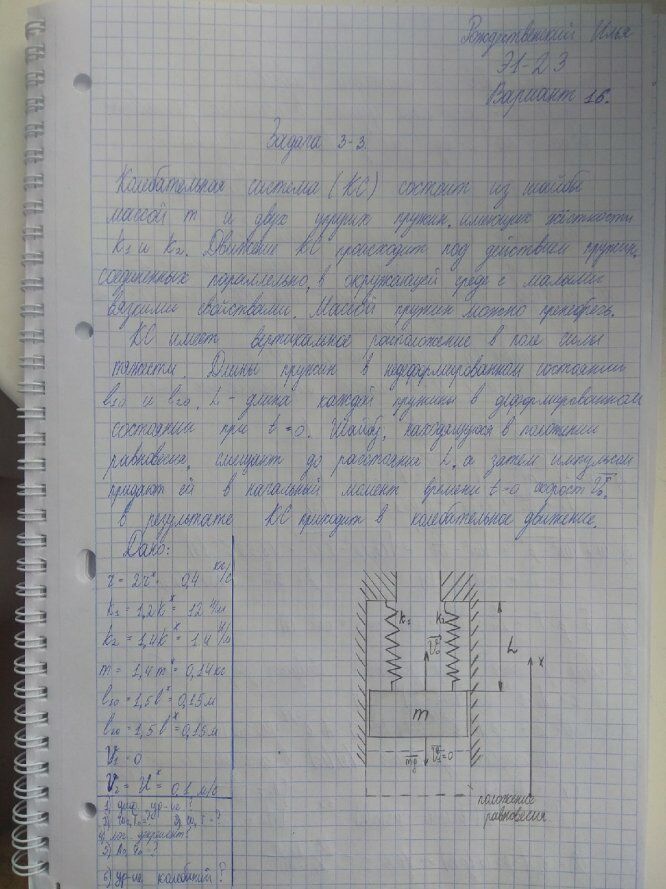 Рождественский Илья
Э1-23
Вариант 16.
Задача 3-3.
Колебательная система (КС) состоит из шайбы
массой m и двух упругих пружин, имеющих жёсткости
k1 и k2. Движение КС происходит под действием пружин,
соединенных параллельно, в окружающей среде с малыми
вязкими свойствами. Массой пружин можно пренебречь.
КС имеет вертикальное расположение в поле силы
тяжести. Длины пружин в недеформированном состоянии
l10 и l20. L - длина каждой пружины в деформированном
состоянии при t=0. Шайбу, находящуюся в положении
равновесия, смещают до расстояния L, а затем импульсом
придают ей в начальный момент времени t=0 скорость V0.
в результате КС приходит в колебательное движение.
Дано:
r = 2r* = 0,4 кг/с
k1 = 1,2k* = 12 Н/м
k2 = 1,4k* = 14 Н/м
m = 1,4m* = 0,14 кг
l10 = 1,5l* = 0,15 м
l20 = 1,5l* = 0,15 м
V1 = 0
V2 = U* = 0,1 м/с
1) диф. ур-ие ?
5) A0, ?
6) ур-ие колебаний ?
k1
k2
V0
L
x
m
mg
V1=0
положение
равновесия